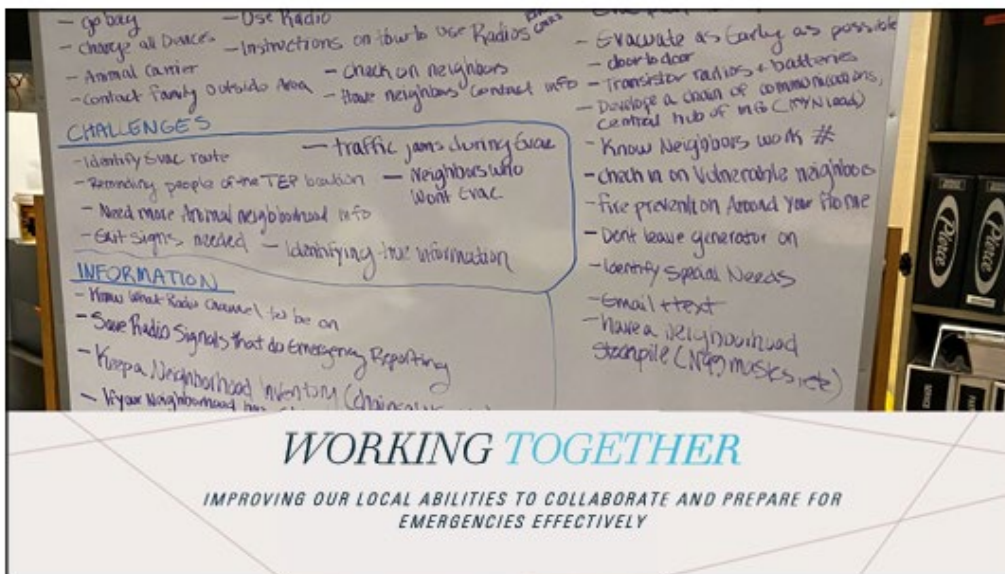 - go bag
- Charge all Devices
- Animal Carrier
- Contact family outside Area
- Use Radio
- Instructions on how to use Radios
- Check on neighbors
- Have neighbors contact info
CHALLENGES
- Identify Evac route
- Reminding people of the TEP location
- Need more Animal neighborhood info
- Exit signs needed
- Identifying true information
- traffic jams during Evac
- Neighbors who
Wont Evac
INFORMATION
- Know What Radio Channel to be on
- Save Radio Signals that do Emergency Reporting
- Keep a Neighborhood Inventory
- If your Neighborhood has
- Evacuate as Early as possible
- door to door
- Transistor radios + batteries
- Develop a chain of communications,
central hub of info
- Know Neighbors work #
- check in on Vulnerable neighbors
- fire prevention Around Your Home
- Dont leave generator on
- Identify Special Needs
- Email + text
- have a neighbourhood
stockpile (N95 masks etc)
Pierce
Pierce
WORKING TOGETHER
IMPROVING OUR LOCAL ABILITIES TO COLLABORATE AND PREPARE FOR
EMERGENCIES EFFECTIVELY